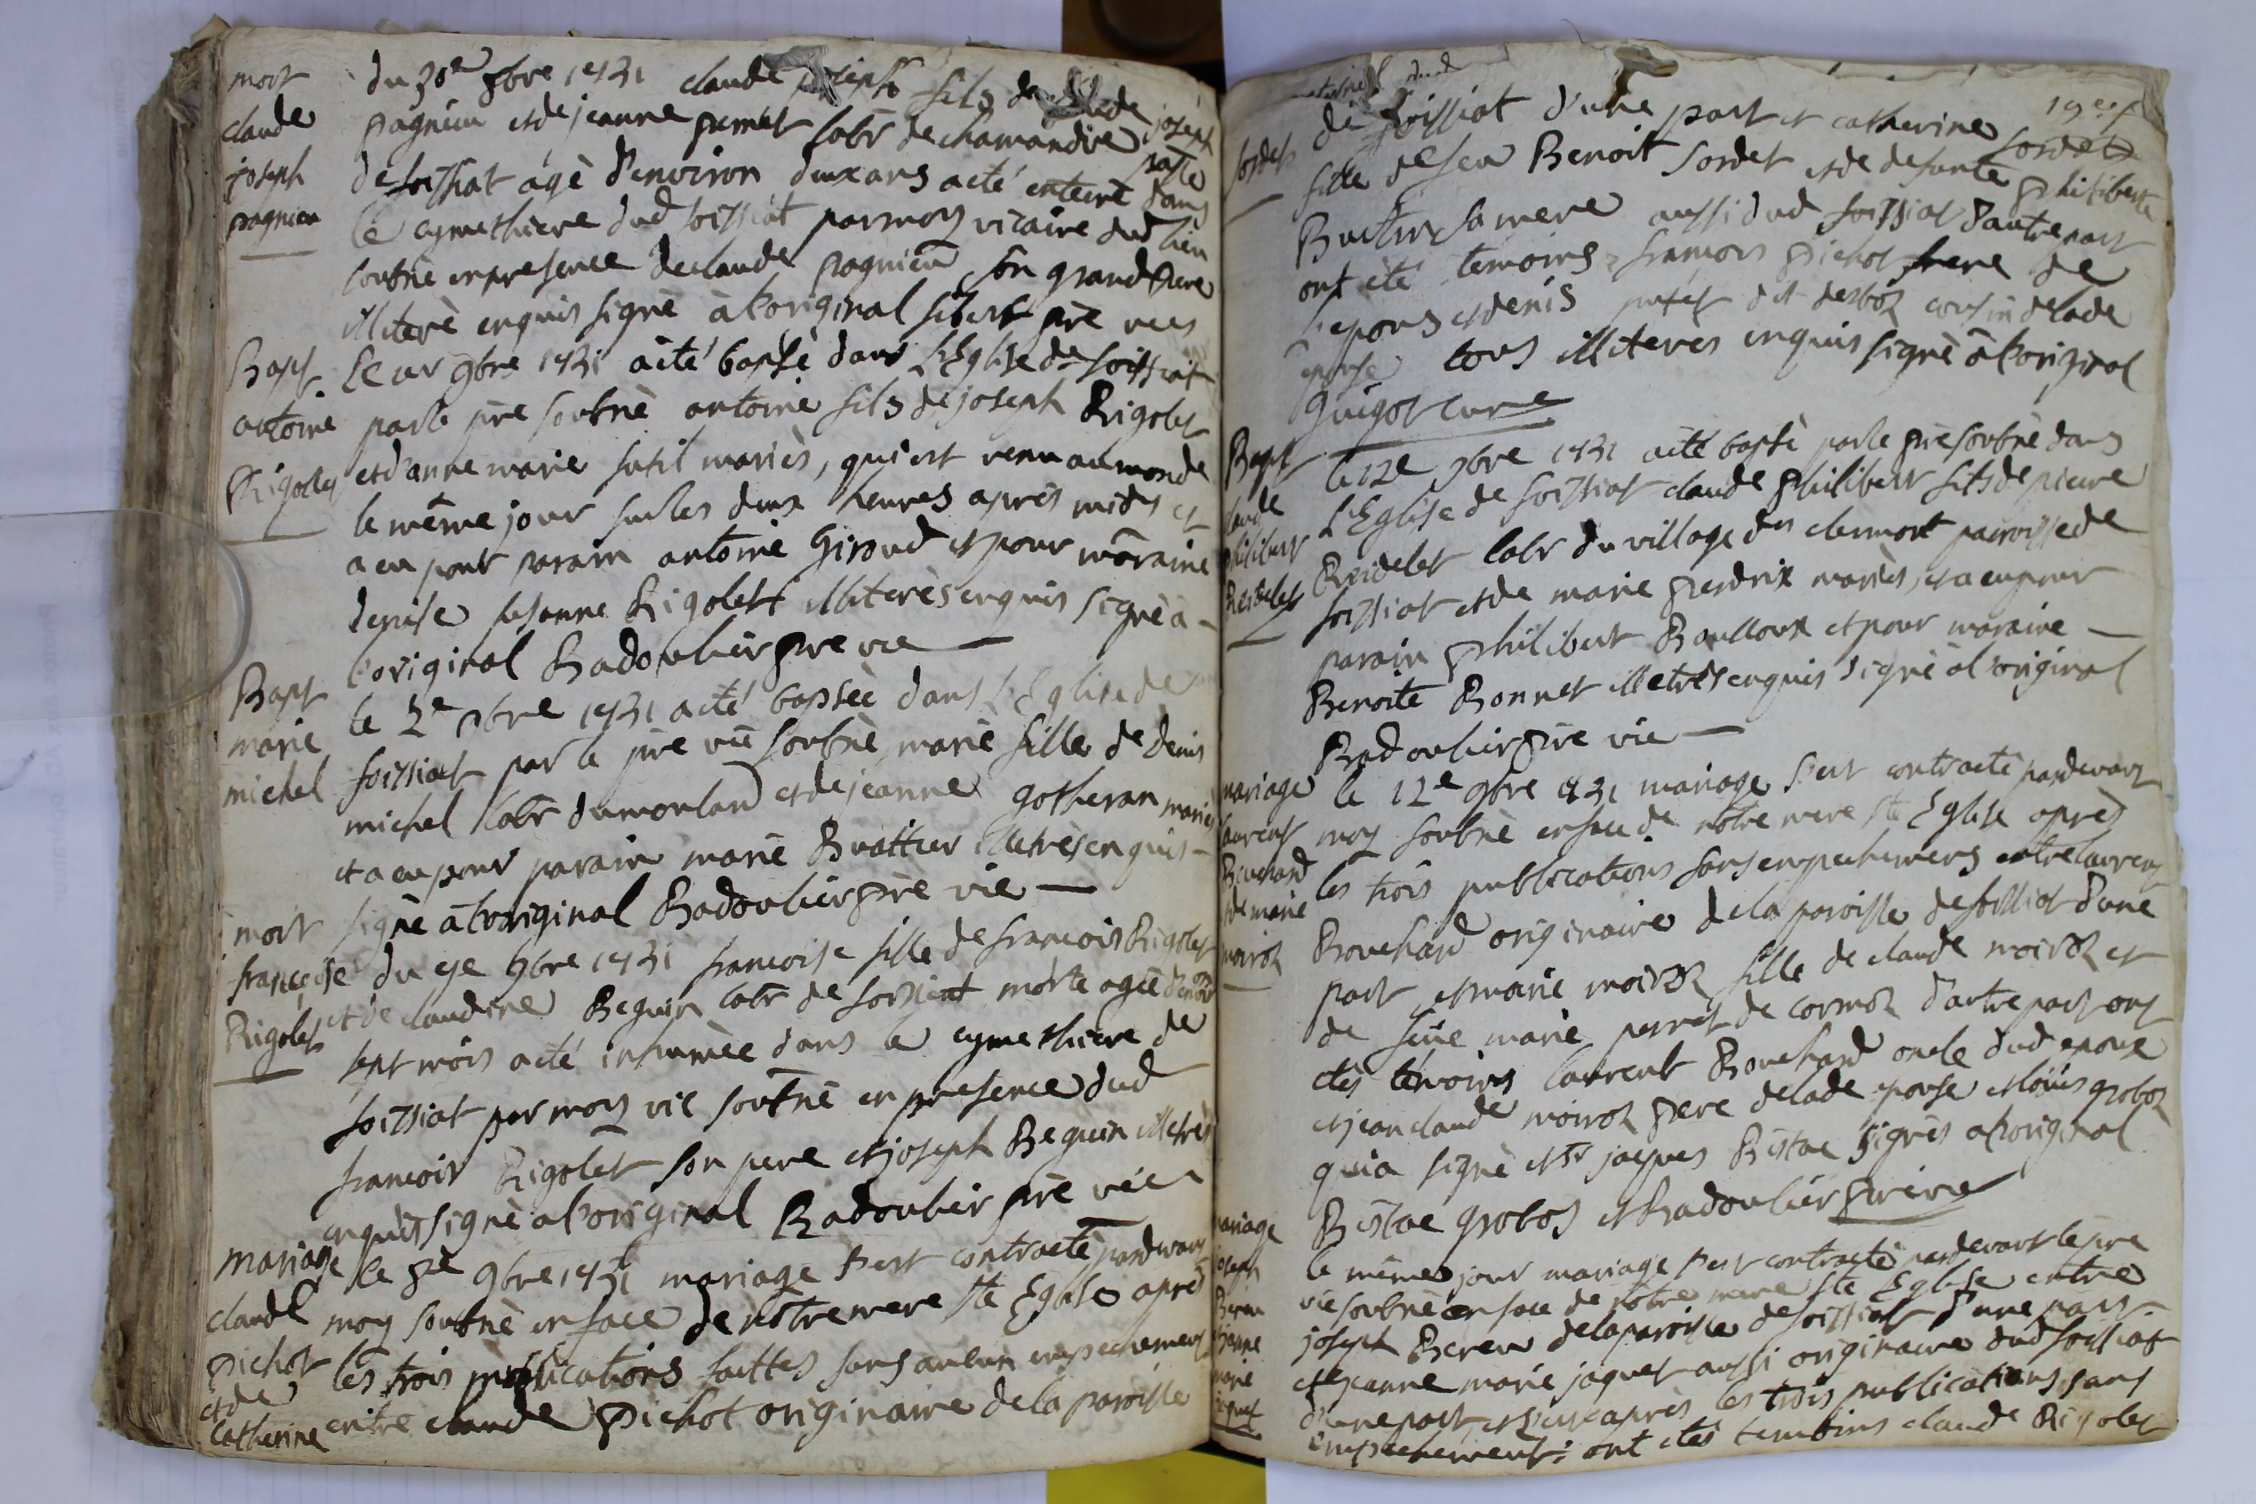 mort
claude
joseph
pagnieu
du 30e 8bre 1731 claude joseph fils de claude joseph
pagnieu et de jeanne pernet labr de chamandre
de foissiat agè d'environ deux ans a eté enterré dans
le cymethiere dud foissiat par moy vicaire dud lieu
soubnè en presence de claude pagnieu son grand pere
illiterè enquis signè à l'original pre vic
Bapt
antoine
Rigolet
Le 9bre 1731 a eté bapsé dans l'Eglise de foissiat
par le pre soubnè antoine fils de joseph Rigolet
et d'anne marie sutil mariès, qui est venu au monde
le même jour sur les deux heures après midy et
a eu pour parain antoine Giroud et pour maraine
denise susanne Rigolet illiterès enquis signè a
l'original Badoulier pre vic
Bapt
marie
michel
le 2e 9bre 1731 a eté bapsée dans l'Eglise de
foissiat par le pre vic soubnè, marie fille de denis
michel labr du montard et de jeanne gotheran mariés
et a eu pour parain marie Buattier illetrés enquis
signè à l'original Badoulier pre vic
mort
françoise
Rigolet
du 9bre 1731 francoise fille de francois Rigolet
et de claudine Beguin labr de foissiat morte agée d'environ
sept mois a eté inhumée dans le cymethiere de
foissiat par moy vic soubnè en presence dud
francois Rigolet son pere et joseph Beguin illetrés
enquis signè a l'original Badoulier prè vic
mariage
claude
pichot
et de
catherine
le 9bre 1731 mariage s'est contracté pardevant
moy soubnè en face de nôtre mere ste Eglise apres
les trois publications faittes sans aucun empechement
entre claude pichot originaire de la paroisse
sordet
de foissiat d'une part et catherine sordet
fille de feu Benoit sordet et de defunte philiberte
sa mere aussi dud foissiat d'autre part
ont été temoins francois pichot frere de
l'epous et denis putet dit cousin de lade
epouse tous illiterès enquis signè à l'original
Guigot curé
Bapt
claude
philibert
Reidelet
le 12e 9bre 1731 a eté bapsé par le pre soubnè dans
L'Eglise de foissiat claude philibert fils de pierre
Reidelet labr du village des clermont paroisse de
foissiat et de marie perdrix mariès, et a eu pour
parain philibert Boulloux et pour maraine
Benoite Bonnet illetrés enquis signè a l'original
Badoulier pre vic
mariage
laurent
Bouchard
et de marie
moiroz
le 12e 9bre 1731 mariage s'est contracté pardevant
moy soubnè en face de nôtre mere ste Eglise après
les trois publications sans empechemens entre laurent
Bouchard originaire de la paroisse de foissiat d'une
part et marie moiroz fille de claude moiroz et
de feüe marie perret de cormoz d'autre part ont
etés temoins laurent Bouchard oncle dud epoux
et jean claude moiroz pere de lade epouse et loüis groboz
qui a signè et sr jaques Bistac signès a l'original
Bistac groboz et Badoulier pre vic
mariage
joseph
Bereu
et jeanne
marie
jaquet
le même jour mariage s'est contractè pardevant le pre
vic soubnè en face de nôtre mere ste Eglise entre
joseph Bereu de la paroisse de foissiat d'une part
et jeanne marie jaquet aussi originaire dud foissiat
d'une part, et ce après les trois publications sans
empechement: ont etés temoins claude Rigolet